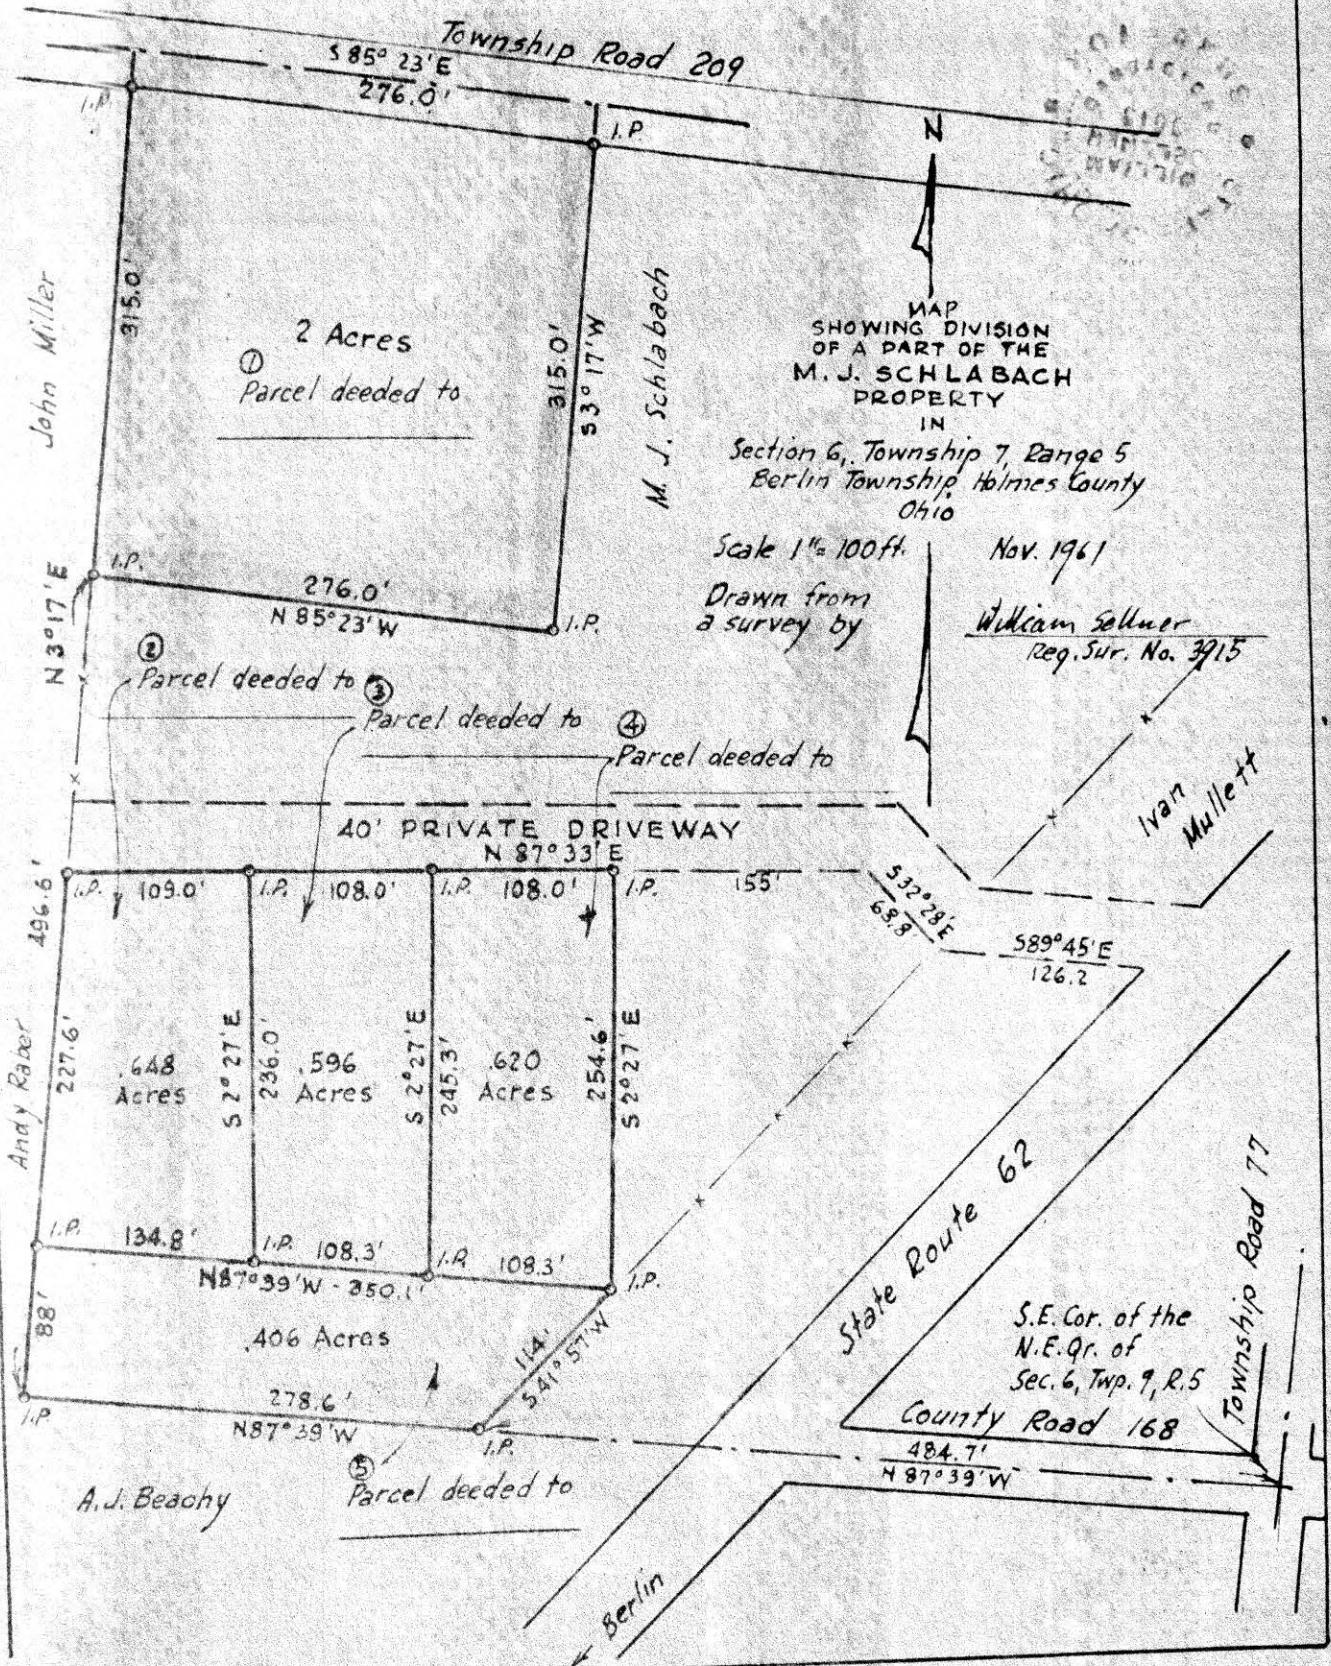 Township Road 209
S 85° 23' E
276.0'
I.P.
I.P.
N
John Miller
315.0'
2 Acres
①
Parcel deeded to
315.0'
S 3° 17' W
M. J. Schlabach
MAP
SHOWING DIVISION
OF A PART OF THE
M. J. SCHLABACH
PROPERTY
IN
Section 6, Township 7, Range 5
Berlin Township, Holmes County
Ohio
Scale 1"= 100 ft.
Nov. 1961
Drawn from
a survey by
William Sellner
Reg. Sur. No. 3915
I.P.
276.0'
N 85° 23' W
I.P.
N 3° 17' E
②
Parcel deeded to
③
Parcel deeded to
④
Parcel deeded to
Ivan
Mullett
40' PRIVATE DRIVEWAY
N 87° 33' E
496.6'
I.P.
109.0'
I.P.
108.0'
I.P.
108.0'
I.P.
155'
S 32° 28' E
68.8'
S 89° 45' E
126.2
Andy Raber
227.6'
.648
Acres
S 2° 27' E
236.0'
.596
Acres
S 2° 27' E
245.3'
.620
Acres
254.6'
S 2° 27' E
State Route 62
Township Road 77
I.P.
134.8'
I.P.
108.3'
I.P.
108.3'
I.P.
N 87° 39' W - 350.1'
88'
.406 Acres
114'
S 41° 57' W
S.E. Cor. of the
N.E. Qr. of
Sec. 6, Twp. 9, R. 5
County Road 168
278.6'
N 87° 39' W
I.P.
I.P.
484.7'
N 87° 39' W
A. J. Beachy
⑤
Parcel deeded to
Berlin